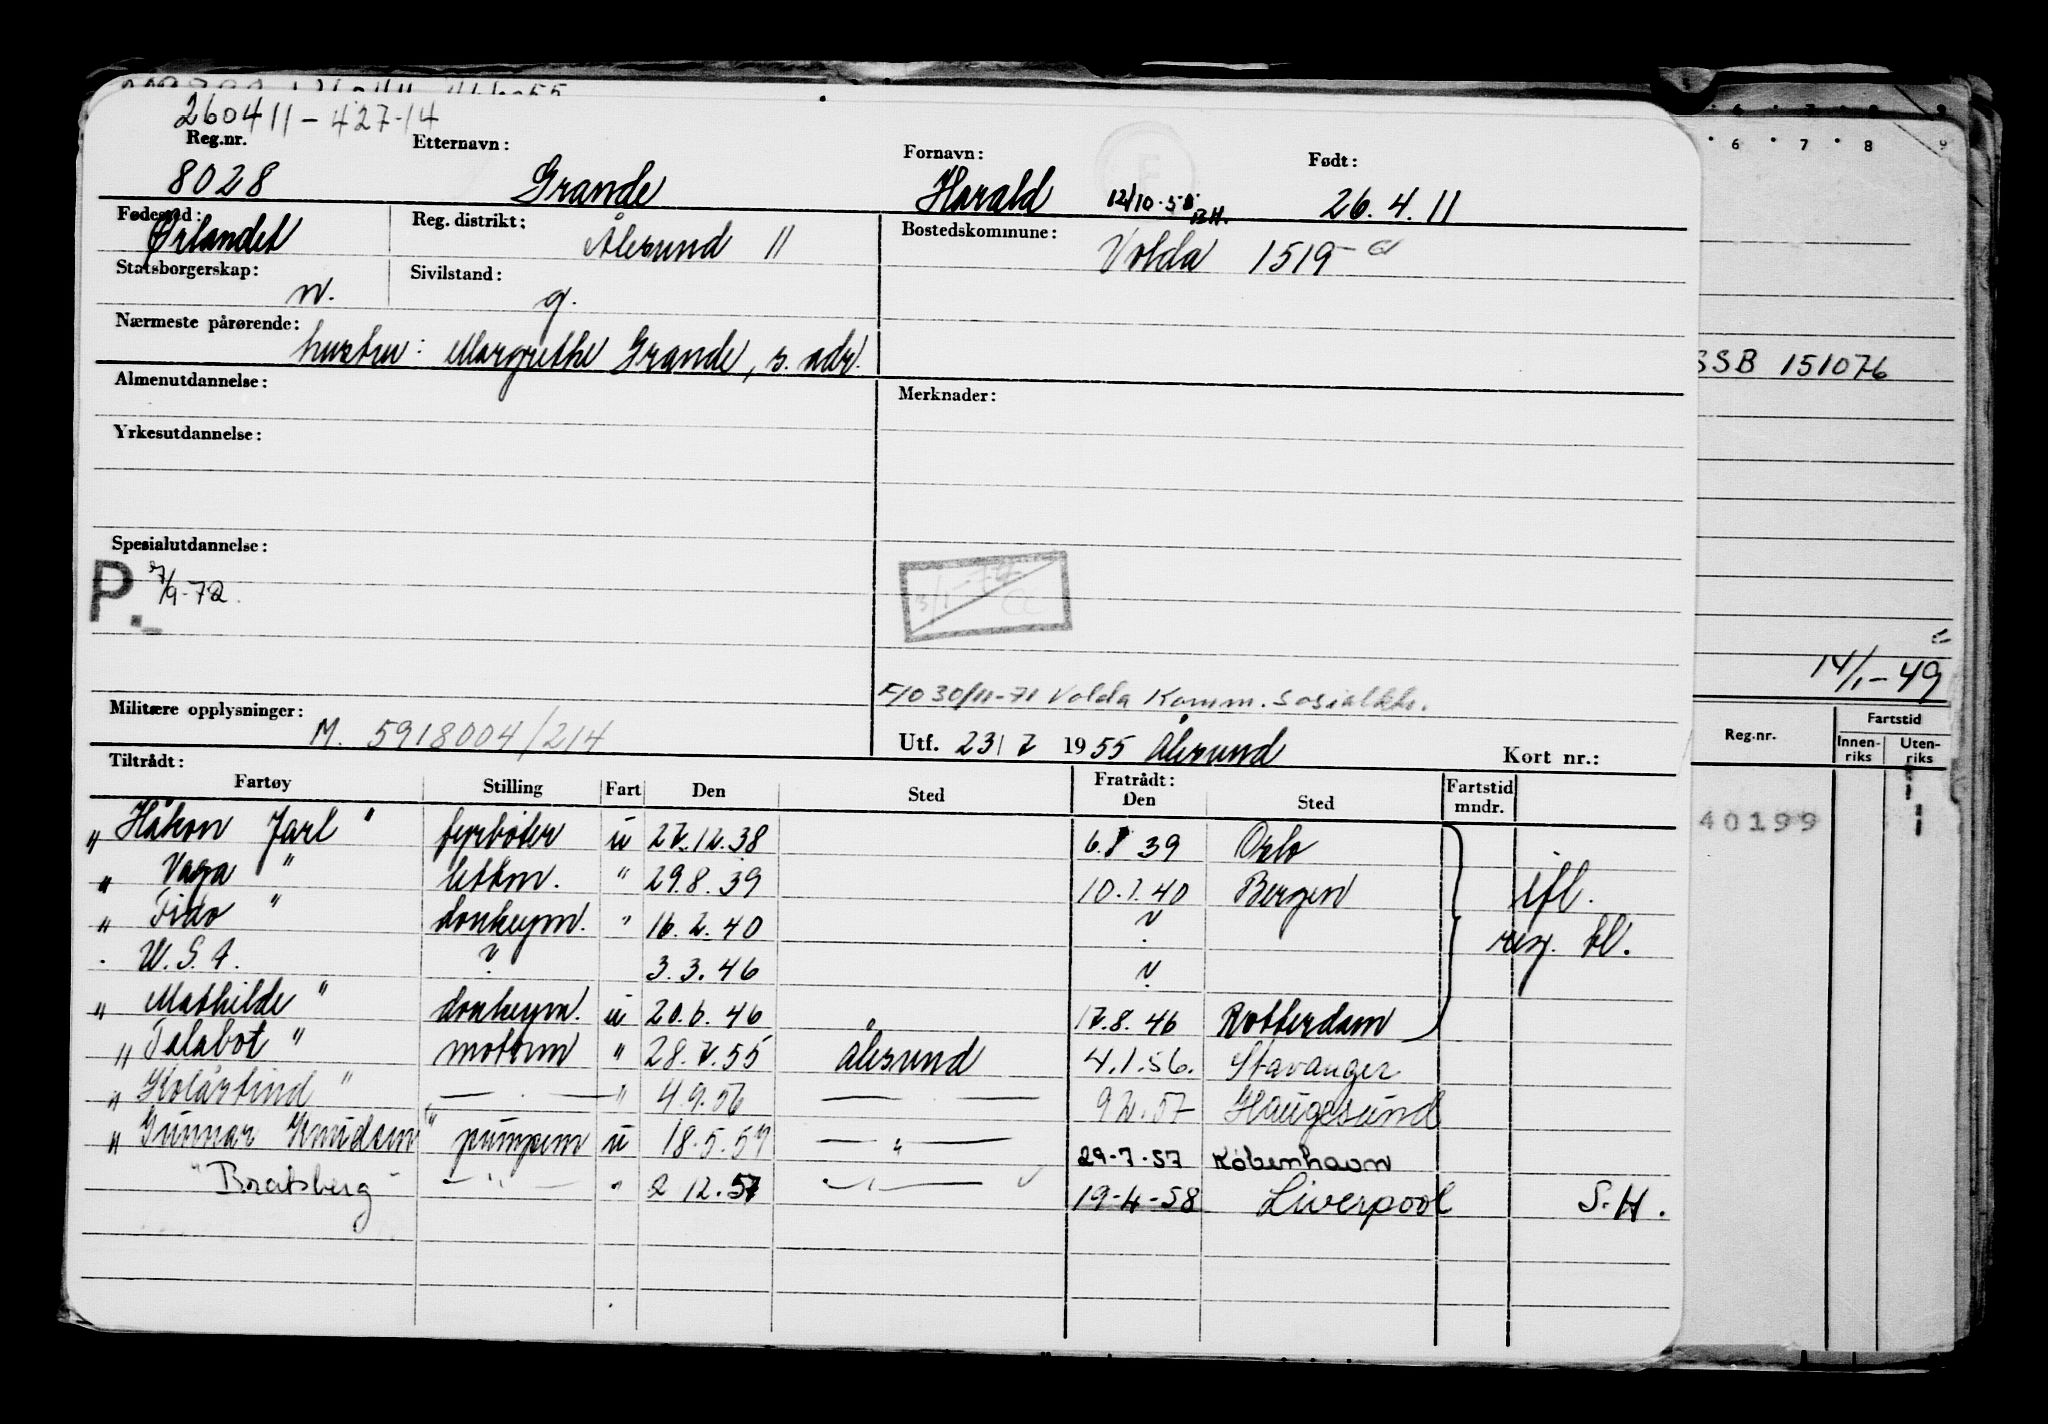 260411-427-14
Reg.nr. Etternavn: Fornavn: Født:
8028 Grande Harald 12/10.58 B.H. 26.4.11
Fødested: Reg. distrikt: Bostedskommune:
Ørlandet Ålesund 11 Volda 1519
Statsborgerskap: Sivilstand:
n. g.
Nærmeste pårørende:
hustru: Margrethe Grande, s. adr.
SSB 151076
Almenutdannelse: Merknader:
Yrkesutdannelse:
Spesialutdannelse:
P. 7/9-72.
3/1-72
14/1-49
F10 30/11-71 Volda Komm. Sosialktr.
Militære opplysninger: M. 5918004/214
Utf. 23/7 1955 Ålesund Kort nr.:
Reg.nr. Fartstid
Innenriks Utenriks
Tiltrådt: Fratrådt:
Fartøy Stilling Fart Den Sted Den Sted Fartstid mndr.
"Håkon Jarl" fyrbøter u 27.12.38 6.8 39 Oslo
40199
"Vaga" lettm. " 29.8.39 10.1.40 Bergen ifl.
"Fido" donkeym. " 16.2.40 ? reg. bl.
W.S.A. ? 3.3.46 ?
"Mathilde" donkeym. u 20.6.46 17.8.46 Rotterdam
"Talabot" motorm " 28.7.55 Ålesund 4.1.56. Stavanger
"Kolåstind" — . — " 4 9.56 — . — 9 2.57 Haugesund
"Gunnar Knudsen" pumpem u 18.5.57 — " — 29-7-57 København
"Bratsberg" — " — " 2 12.57 — " — 19-4-58 Liverpool S.H.